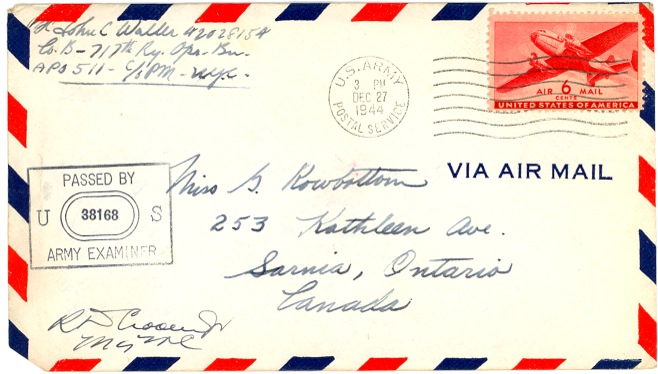 John C Waller 42028154
Co. B - 717th Ry. Opn. Bn.
APO 511 - C/o PM - nyc.
U.S. ARMY
3 PM
DEC 27
1944
POSTAL SERVICE
AIR 6 MAIL
CENTS
UNITED STATES OF AMERICA
VIA AIR MAIL
PASSED BY
U 38168 S
ARMY EXAMINER
Miss G. Rowbottom
253 Kathleen Ave.
Sarnia, Ontario
Canada